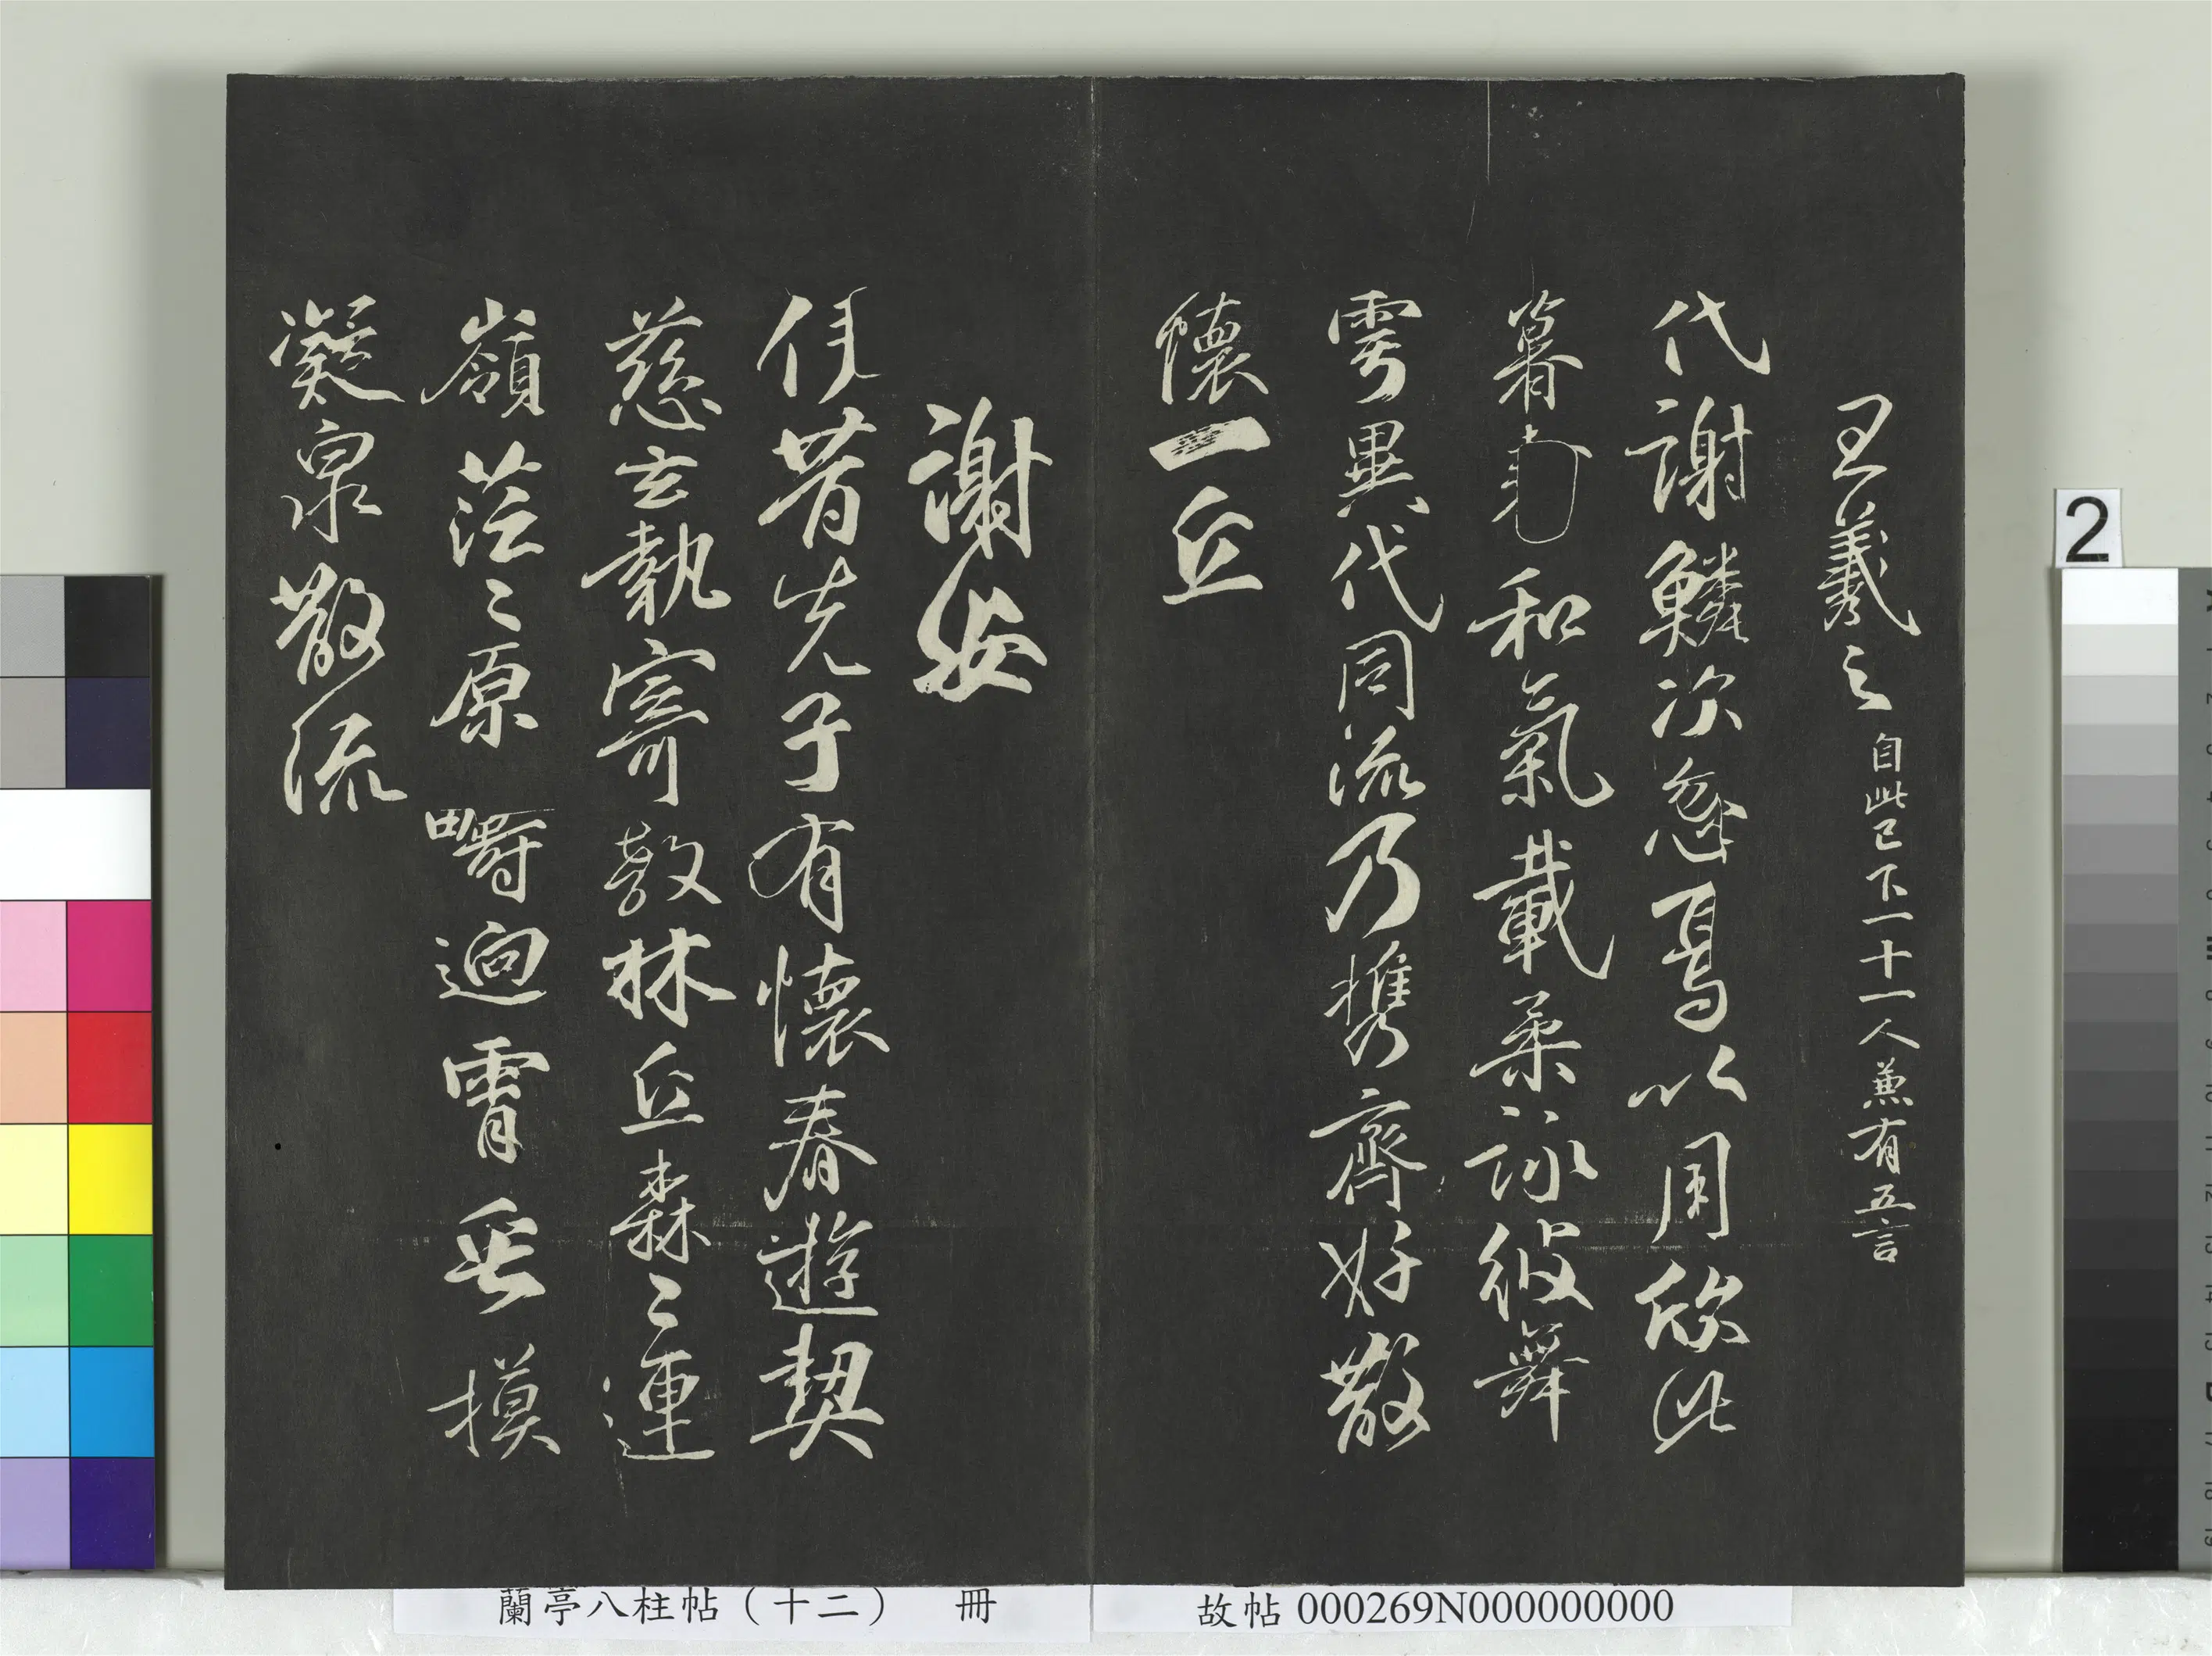 王羲之 自此已下一十一人兼有五言
代謝鱗次忽焉以周欣此
暮和氣載柔詠彼舞
雩異代同流乃携齊好散
懷一丘
謝安
伊昔先子有懷春遊契
慈玄執寄敖林丘森〻連
嶺茫〻原疇迥霄垂模
凝泉散流
2
蘭亭八柱帖（十二） 冊
故帖 000269N000000000